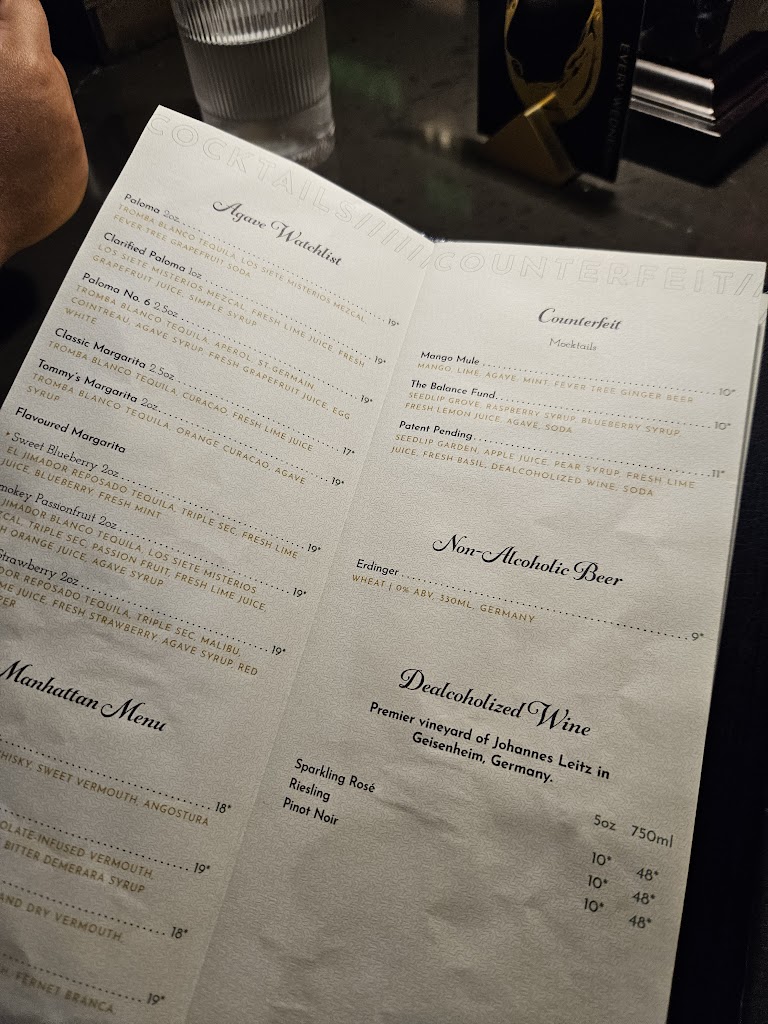 COCKTAILS//////
Agave Watchlist
Paloma 2oz 19*
TROMBA BLANCO TEQUILA, LOS SIETE MISTERIOS MEZCAL,
FEVER TREE GRAPEFRUIT SODA
Clarified Paloma 1oz 19*
LOS SIETE MISTERIOS MEZCAL, FRESH LIME JUICE, FRESH
GRAPEFRUIT JUICE, SIMPLE SYRUP
Paloma No. 6 2.5oz 19*
TROMBA BLANCO TEQUILA, APEROL, ST-GERMAIN,
COINTREAU, AGAVE SYRUP, FRESH GRAPEFRUIT JUICE, EGG
WHITE
Classic Margarita 2.5oz 17*
TROMBA BLANCO TEQUILA, CURACAO, FRESH LIME JUICE
Tommy's Margarita 2oz 19*
TROMBA BLANCO TEQUILA, ORANGE CURACAO, AGAVE
SYRUP
Flavoured Margarita
Sweet Blueberry 2oz 19*
EL JIMADOR REPOSADO TEQUILA, TRIPLE SEC, FRESH LIME
JUICE, BLUEBERRY, FRESH MINT
mokey Passionfruit 2oz 19*
JIMADOR BLANCO TEQUILA, LOS SIETE MISTERIOS
ZCAL, TRIPLE SEC, PASSION FRUIT, FRESH LIME JUICE,
H ORANGE JUICE, AGAVE SYRUP
Strawberry 2oz 19*
DOR REPOSADO TEQUILA, TRIPLE SEC, MALIBU,
ME JUICE, FRESH STRAWBERRY, AGAVE SYRUP, RED
PER
Manhattan Menu
18*
HISKY, SWEET VERMOUTH, ANGOSTURA
19*
OLATE-INFUSED VERMOUTH,
BITTER DEMERARA SYRUP
18*
AND DRY VERMOUTH,
19*
H, FERNET BRANCA
COUNTERFEIT//
Counterfeit
Mocktails
Mango Mule 10*
MANGO, LIME, AGAVE, MINT, FEVER TREE GINGER BEER
The Balance Fund 10*
SEEDLIP GROVE, RASPBERRY SYRUP, BLUEBERRY SYRUP,
FRESH LEMON JUICE, AGAVE, SODA
Patent Pending 11*
SEEDLIP GARDEN, APPLE JUICE, PEAR SYRUP, FRESH LIME
JUICE, FRESH BASIL, DEALCOHOLIZED WINE, SODA
Non-Alcoholic Beer
Erdinger 9*
WHEAT | 0% ABV, 330ML, GERMANY
Dealcoholized Wine
Premier vineyard of Johannes Leitz in
Geisenheim, Germany.
5oz 750ml
Sparkling Rosé 10* 48*
Riesling 10* 48*
Pinot Noir 10* 48*